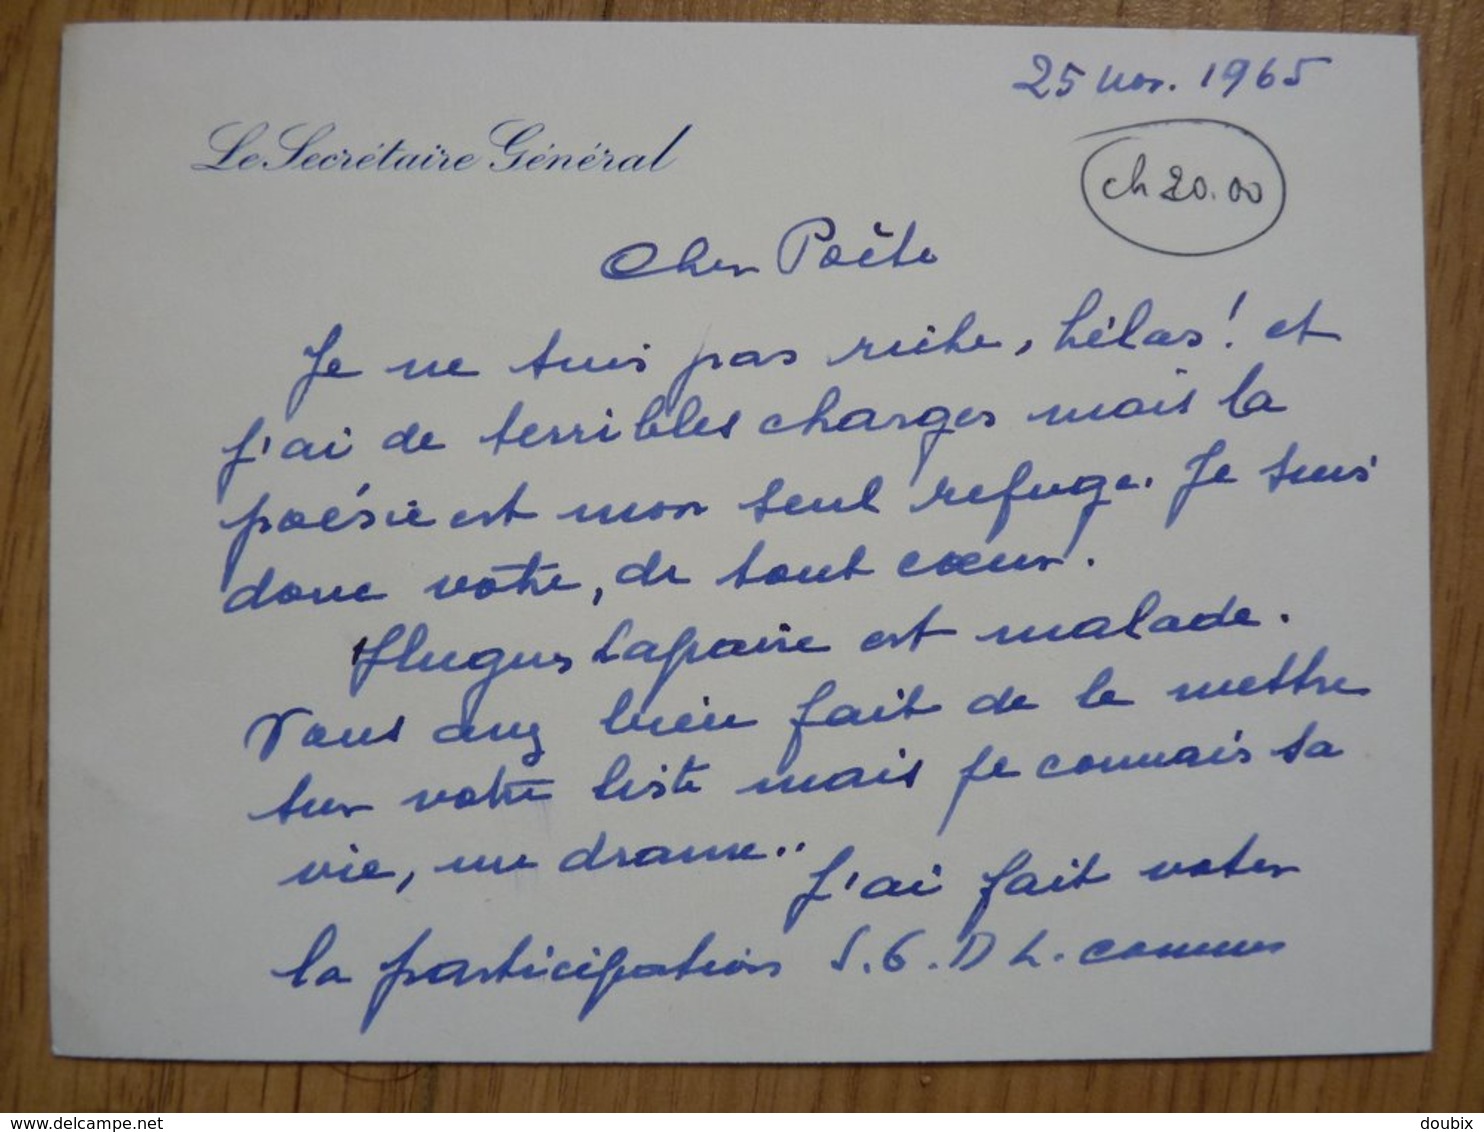 25 nov. 1965
Le Secrétaire Général
ch 20.00
Cher Poète
Je ne suis pas riche, hélas! et
j'ai de terribles charges mais la
poésie est mon seul refuge. Je suis
donc vôtre, de tout cœur.
Hugues Lapaire est malade.
Vous avez bien fait de le mettre
sur votre liste mais je connais sa
vie, un drame..
J'ai fait voter
la participation S.G.D L. comme
delcampe.net
doubix